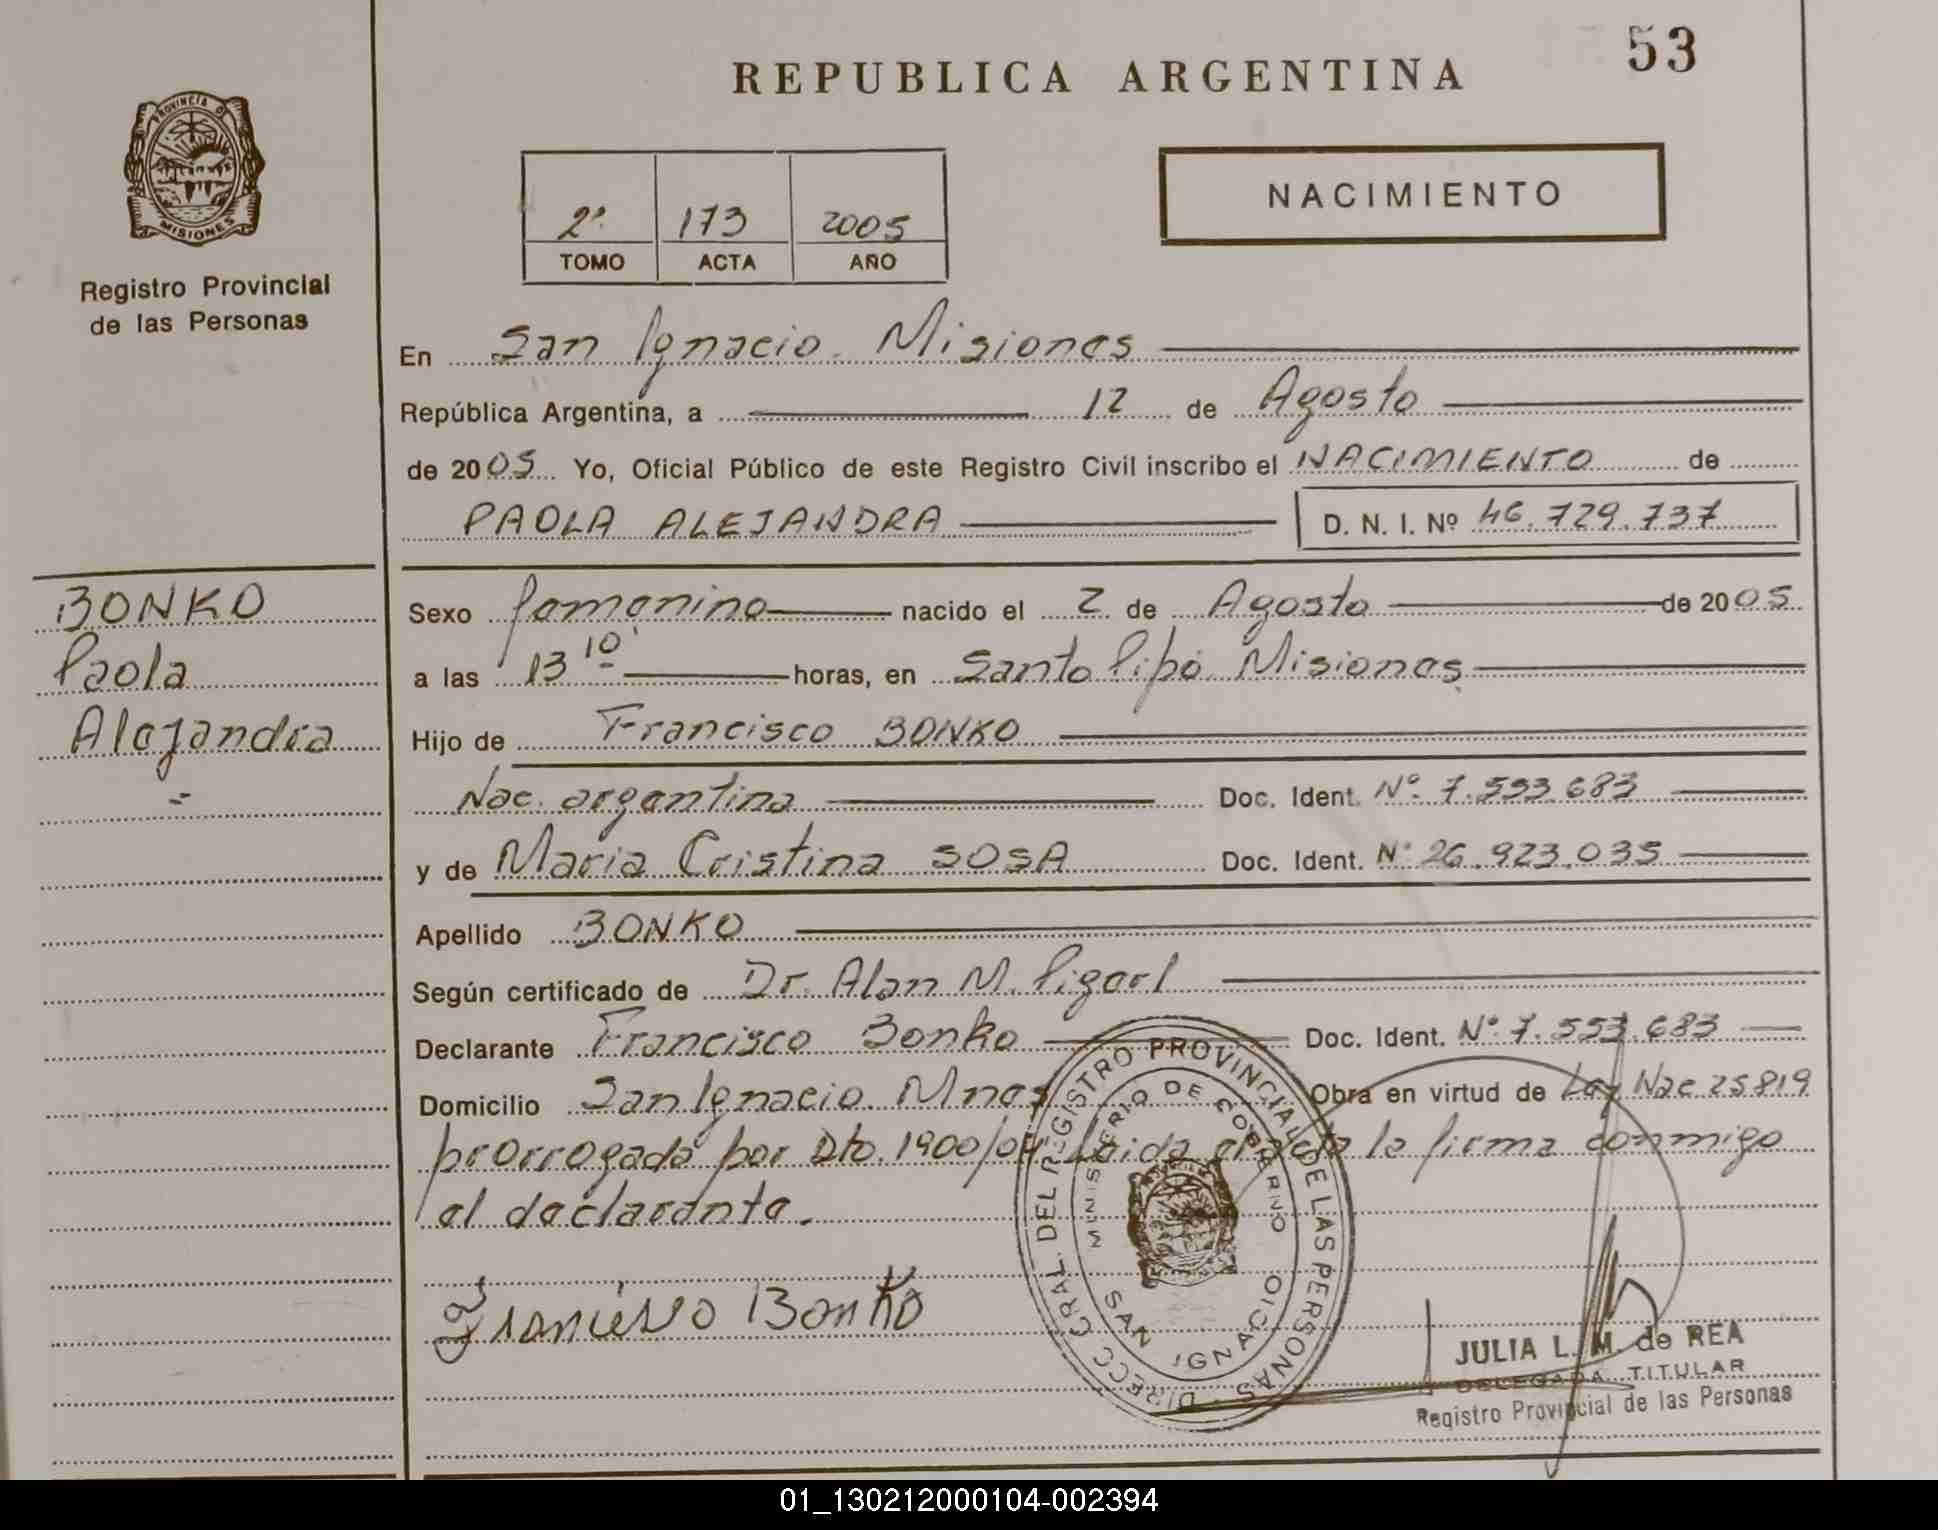 53
REPUBLICA ARGENTINA
PROVINCIA DE
MISIONES
Registro Provincial
de las Personas
2º 173 2005
TOMO ACTA AÑO
NACIMIENTO
En San Ignacio. Misiones
República Argentina, a 12 de Agosto
de 2005 Yo, Oficial Público de este Registro Civil inscribo el NACIMIENTO de
PAOLA ALEJANDRA D. N. I. Nº 46.729.737
BONKO
Paola
Alejandra
Sexo femenino nacido el 2 de Agosto de 2005
a las 13 10' horas, en Santo Pipó. Misiones
Hijo de Francisco BONKO
Nac. argentina Doc. Ident. Nº 7.553.683
y de Maria Cristina SOSA Doc. Ident. Nº 26.923.035
Apellido BONKO
Según certificado de Dr. Alan M.
Declarante Francisco Bonko Doc. Ident. Nº 7.553.683
Domicilio San Ignacio. Mnes Obra en virtud de Ley Nac 25819
prorrogada por Dto. 1900/04. Leida el acta la firma conmigo
el declarante.
Francisco Bonko
DIRECC GRAL. DEL REGISTRO PROVINCIAL DE LAS PERSONAS
MINISTERIO DE GOBIERNO
SAN IGNACIO
JULIA L. M. de REA
DELEGADA TITULAR
Registro Provincial de las Personas
01_130212000104-002394